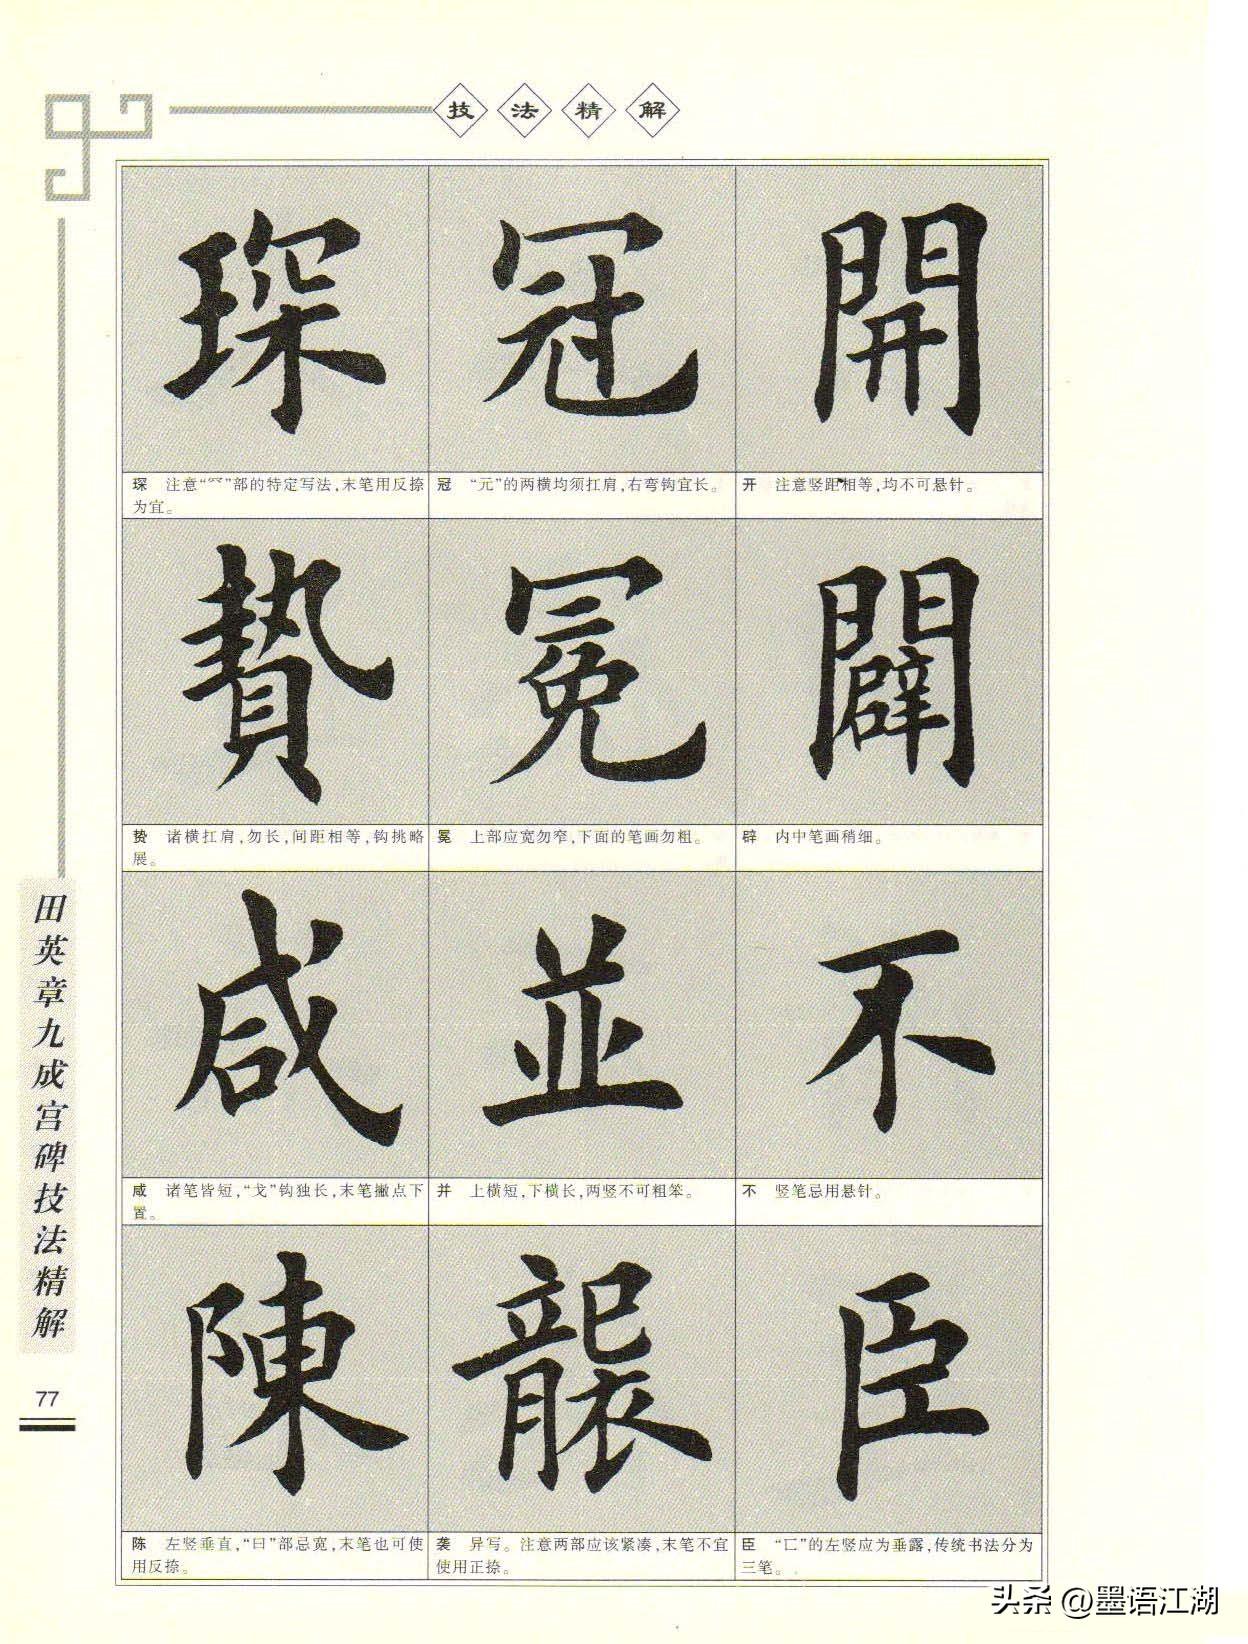 技法精解
琛 冠 開
琛 注意“⺳”部的特定写法,末笔用反捺
为宜。
冠 “元”的两横均须扛肩,右弯钩宜长。
开 注意竖距相等,均不可悬针。
贄 冕 闢
贽 诸横扛肩,勿长,间距相等,钩挑略
展。
冕 上部应宽勿窄,下面的笔画勿粗。
辟 内中笔画稍细。
咸 並 不
咸 诸笔皆短,“戈”钩独长,末笔撇点下
置。
并 上横短,下横长,两竖不可粗笨。
不 竖笔忌用悬针。
陳 襲 臣
陈 左竖垂直,“曰”部忌宽,末笔也可使
用反捺。
袭 异写。注意两部应该紧凑,末笔不宜
使用正捺。
臣 “匚”的左竖应为垂露,传统书法分为
三笔。
田英章九成宫碑技法精解
77
头条 @墨语江湖